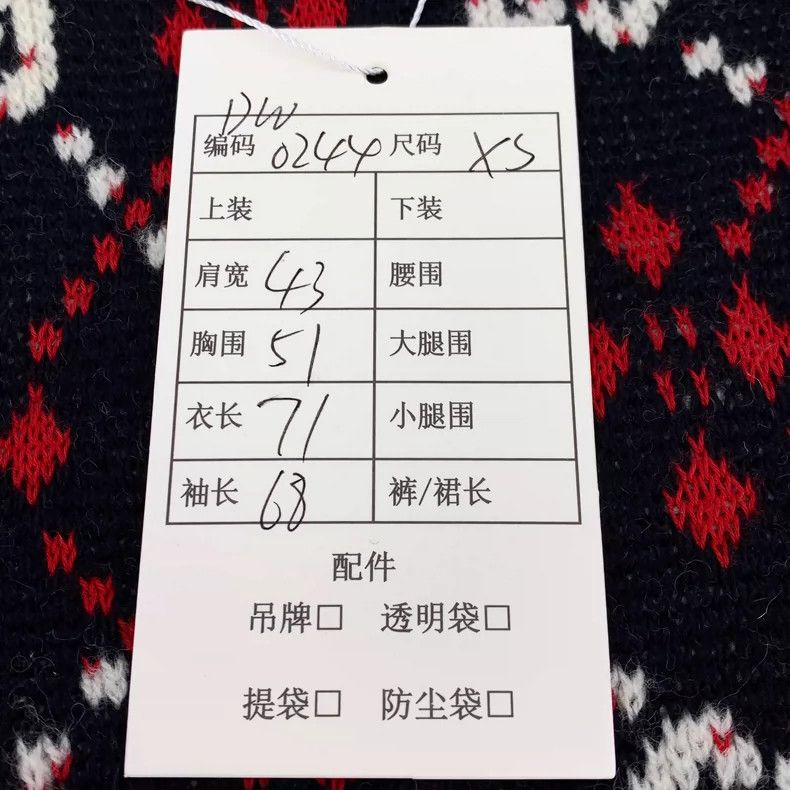 DW
编码 0244 尺码 XS
上装 下装
肩宽 43 腰围
胸围 51 大腿围
衣长 71 小腿围
袖长 68 裤/裙长
配件
吊牌□ 透明袋□
提袋□ 防尘袋□